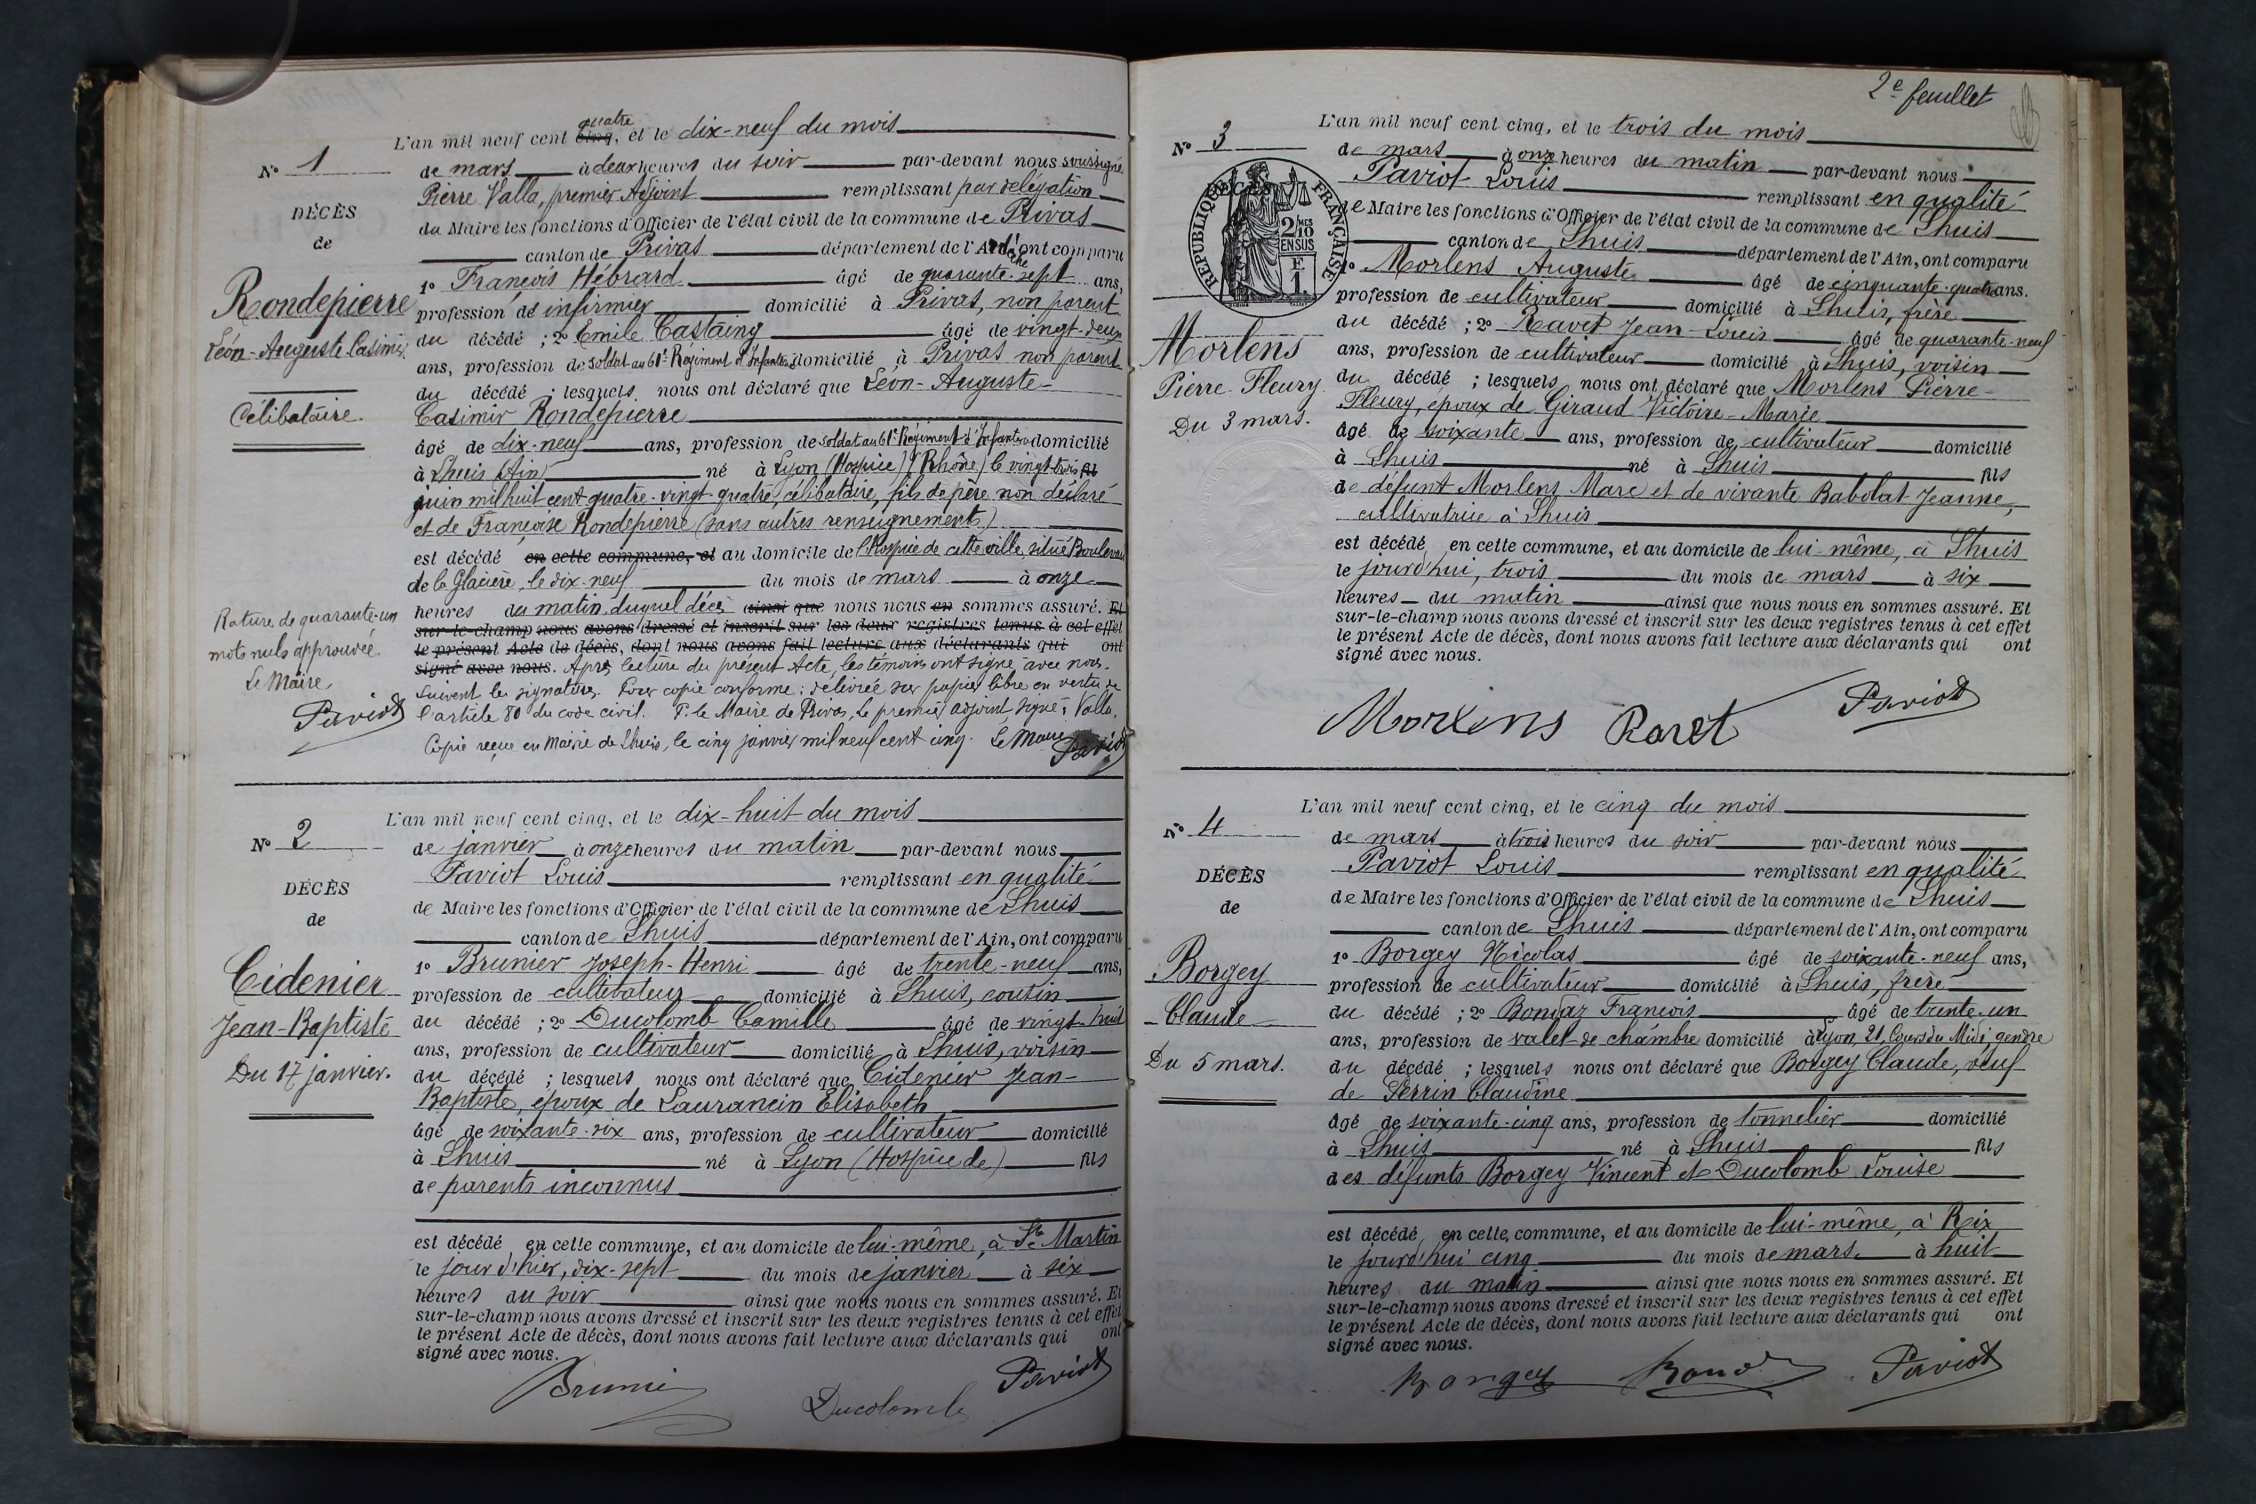 L'an mil neuf cent cinq, quatre et le dix-neuf du mois
N° 1
de mars à deux heures du soir par-devant nous soussigné
Pierre Valla, premier Adjoint remplissant par délégation
DÉCÈS
du Maire les fonctions d'Officier de l'état civil de la commune de Privas
de
canton de Privas département de l'Ardèche ont comparu
Rondepierre
1° François Hébrard âgé de quarante-sept ans,
profession de infirmier domicilié à Privas, non parent
Léon-Auguste Casimir
du décédé ; 2° Emile Castaing âgé de vingt-deux
ans, profession de soldat au 61e Régiment d'Infanterie domicilié à Privas non parent
du décédé ; lesquels nous ont déclaré que Léon-Auguste-
Célibataire.
Casimir Rondepierre
âgé de dix-neuf ans, profession de soldat au 61e Régiment d'Infanterie domicilié
à Lhuis (Ain) né à Lyon (Hospice) (Rhône) le vingt-trois fils
juin mil huit cent quatre-vingt-quatre, célibataire, fils de père non déclaré
et de Françoise Rondepierre (sans autres renseignements)
est décédé en cette commune, et au domicile de l'Hospice de cette ville, situé Boulevard
de la Glacière, le dix-neuf du mois de mars à onze
heures du matin duquel décès ainsi que nous nous en sommes assuré. Et
sur-le-champ nous avons dressé et inscrit sur les deux registres tenus à cet effet
le présent Acte de décès, dont nous avons fait lecture aux déclarants qui ont
signé avec nous. Après lecture du présent Acte, les témoins ont signé avec nous.
Suivent les signatures. Pour copie conforme : délivrée sur papier libre en vertu de
l'article 80 du code civil. P. le Maire de Privas, Le premier adjoint, signé : Valla.
Copie reçue en Mairie de Lhuis, le cinq janvier mil neuf cent cinq. Le Maire
Paviot
Rature de quarante-un
mots nuls approuvée.
Le Maire,
Paviot
L'an mil neuf cent cinq, et le dix-huit du mois
N° 2
de janvier à onze heures du matin par-devant nous
Paviot Louis remplissant en qualité
DÉCÈS
de Maire les fonctions d'Officier de l'état civil de la commune de Lhuis
de
canton de Lhuis département de l'Ain, ont comparu
Cidenier
1° Brunier Joseph-Henri âgé de trente-neuf ans,
profession de cultivateur domicilié à Lhuis, cousin
Jean-Baptiste
du décédé ; 2° Ducolomb Camille âgé de vingt-huit
ans, profession de cultivateur domicilié à Lhuis, voisin
Du 17 janvier.
du décédé ; lesquels nous ont déclaré que Cidenier Jean-
Baptiste, époux de Laurancin Elisabeth
âgé de soixante-six ans, profession de cultivateur domicilié
à Lhuis né à Lyon (Hospice de) fils
de parents inconnus
est décédé en cette commune, et au domicile de lui-même, à St Martin
le jour d'hier, dix-sept du mois de janvier à six
heures du soir ainsi que nous nous en sommes assuré. Et
sur-le-champ nous avons dressé et inscrit sur les deux registres tenus à cet effet
le présent Acte de décès, dont nous avons fait lecture aux déclarants qui ont
signé avec nous.
Ducolomb
Paviot
2e feuillet
L'an mil neuf cent cinq, et le trois du mois
N° 3
de mars à onze heures du matin par-devant nous
Paviot Louis remplissant en qualité
RÉPUBLIQUE FRANÇAISE
2/10 EN SUS
F 1
de Maire les fonctions d'Officier de l'état civil de la commune de Lhuis
canton de Lhuis département de l'Ain, ont comparu
1° Morlens Auguste âgé de cinquante-quatre ans.
profession de cultivateur domicilié à Lhuis, frère
Morlens
du décédé ; 2° Ravet Jean-Louis âgé de quarante-neuf
ans, profession de cultivateur domicilié à Lhuis, voisin
Pierre-Fleury
du décédé ; lesquels nous ont déclaré que Morlens Pierre-
Fleury, époux de Giraud Victoire-Marie
Du 3 mars.
âgé de soixante ans, profession de cultivateur domicilié
à Lhuis né à Lhuis fils
de défunt Morlens Marc et de vivante Babolat Jeanne,
cultivatrice à Lhuis
est décédé en cette commune, et au domicile de lui-même, à Lhuis
le jourd'hui, trois du mois de mars à six
heures du matin ainsi que nous nous en sommes assuré. Et
sur-le-champ nous avons dressé et inscrit sur les deux registres tenus à cet effet
le présent Acte de décès, dont nous avons fait lecture aux déclarants qui ont
signé avec nous.
Morlens Ravet Paviot
L'an mil neuf cent cinq, et le cinq du mois
N° 4
de mars à trois heures du soir par-devant nous
Paviot Louis remplissant en qualité
DÉCÈS
de Maire les fonctions d'Officier de l'état civil de la commune de Lhuis
de
canton de Lhuis département de l'Ain, ont comparu
Borgey
1° Borgey Nicolas âgé de soixante-neuf ans,
profession de cultivateur domicilié à Lhuis, frère
Claude
du décédé ; 2° Bondaz François âgé de trente-un
ans, profession de valet de chambre domicilié à Lyon, 21, Cours du Midi, gendre
Du 5 mars.
du décédé ; lesquels nous ont déclaré que Borgey Claude, veuf
de Perrin Claudine
âgé de soixante-cinq ans, profession de tonnelier domicilié
à Lhuis né à Lhuis fils
des défunts Borgey Vincent et Ducolomb Louise
est décédé en cette commune, et au domicile de lui-même, à Rix
le jourd'hui cinq du mois de mars à huit
heures du matin ainsi que nous nous en sommes assuré. Et
sur-le-champ nous avons dressé et inscrit sur les deux registres tenus à cet effet
le présent Acte de décès, dont nous avons fait lecture aux déclarants qui ont
signé avec nous.
Borgey Paviot